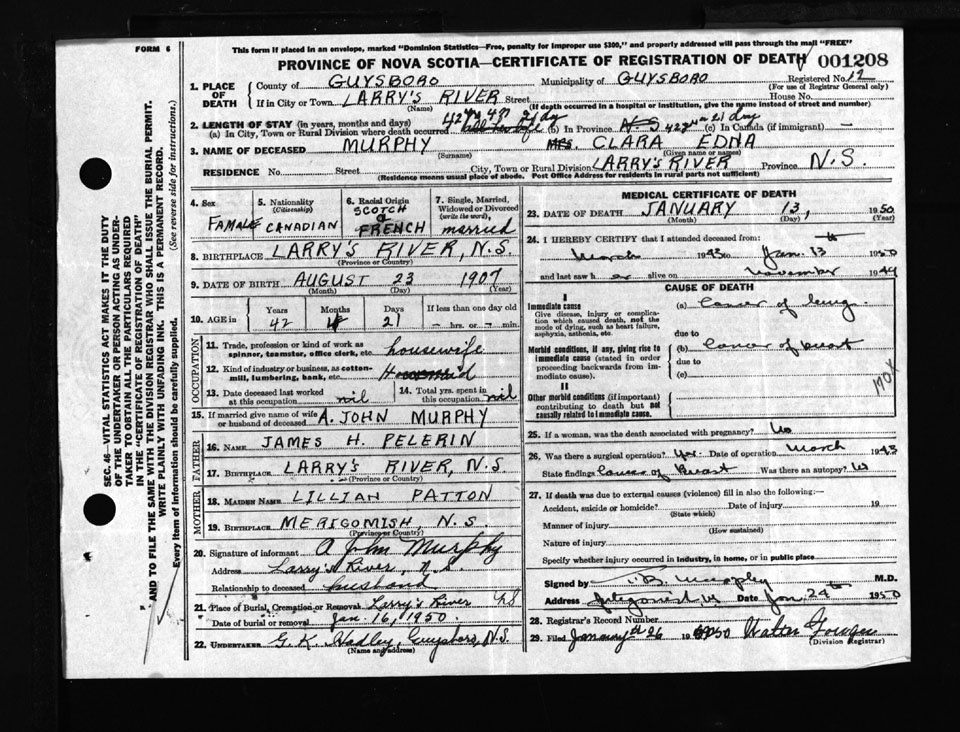 FORM 6
This form if placed in an envelope, marked "Dominion Statistics—Free, penalty for improper use $300," and properly addressed will pass through the mail "FREE"
PROVINCE OF NOVA SCOTIA—CERTIFICATE OF REGISTRATION OF DEATH 001208
SEC. 46—VITAL STATISTICS ACT MAKES IT THE DUTY
OF THE UNDERTAKER OR PERSON ACTING AS UNDER-
TAKER TO OBTAIN ALL THE PARTICULARS REQUIRED
IN THE "CERTIFICATE OF REGISTRATION OF DEATH"
AND TO FILE THE SAME WITH THE DIVISION REGISTRAR WHO SHALL ISSUE THE BURIAL PERMIT.
WRITE PLAINLY WITH UNFADING INK. THIS IS A PERMANENT RECORD.
Every item of information should be carefully supplied. (See reverse side for instructions.)
1. PLACE OF DEATH County of GUYSBORO Municipality of GUYSBORO Registered No. 12
(For use of Registrar General only)
If in City or Town LARRY'S RIVER Street House No.
(Name) (If death occurred in a hospital or institution, give the name instead of street and number)
2. LENGTH OF STAY (in years, months and days)
(a) In City, Town or Rural Division where death occurred (b) In Province N.S. (c) In Canada (if immigrant) —
3. NAME OF DECEASED MURPHY MRS. CLARA EDNA
(Surname) (Given name or names)
RESIDENCE No. Street City, Town or Rural Division LARRY'S RIVER Province N.S.
(Residence means usual place of abode. Post Office Address for residents in rural parts not sufficient)
4. Sex FAMALE
5. Nationality (Citizenship) CANADIAN
6. Racial Origin SCOTCH & FRENCH
7. Single, Married, Widowed or Divorced (write the word) married
8. BIRTHPLACE LARRY'S RIVER, N.S.
(Province or Country)
9. DATE OF BIRTH AUGUST 23 1907
(Month) (Day) (Year)
10. AGE in Years 42 Months 4 Days 21 If less than one day — hrs. or — min.
OCCUPATION
11. Trade, profession or kind of work as spinner, teamster, office clerk, etc. housewife
12. Kind of industry or business, as cotton-mill, lumbering, bank, etc.
13. Date deceased last worked at this occupation nil
14. Total yrs. spent in this occupation nil
15. If married give name of wife or husband of deceased A. JOHN MURPHY
FATHER
16. NAME JAMES H. PELERIN
17. BIRTHPLACE LARRY'S RIVER, N.S.
(Province or Country)
MOTHER
18. MAIDEN NAME LILLIAN PATTON
19. BIRTHPLACE MERIGOMISH, N.S.
(Province or Country)
20. Signature of informant A John Murphy
Address Larry's River, N.S.
Relationship to deceased husband
21. Place of Burial, Cremation or Removal Larry's River N.S
Date of burial or removal Jan. 16, 1950.
22. UNDERTAKER G. K. Hadley, Guysboro, N.S.
(Name and address)
MEDICAL CERTIFICATE OF DEATH
23. DATE OF DEATH JANUARY 13, 1950
(Month) (Day) (Year)
24. I HEREBY CERTIFY that I attended deceased from:
March 1943 to Jan. 13th 1950
and last saw her alive on November 1949
CAUSE OF DEATH
I
Immediate cause
Give disease, injury or complication which caused death, not the mode of dying, such as heart failure, asphyxia, asthenia, etc.
(a) Cancer of lung
due to
Morbid conditions, if any, giving rise to immediate cause (stated in order proceeding backwards from immediate cause).
(b) Cancer of breast
due to
(c)
II
Other morbid conditions (if important) contributing to death but not causally related to immediate cause.
170X
25. If a woman, was the death associated with pregnancy? No
26. Was there a surgical operation? Yes Date of operation March 1943
State findings Cancer of Breast Was there an autopsy? No
27. If death was due to external causes (violence) fill in also the following:—
Accident, suicide or homicide? Date of injury 19
(State which)
Manner of injury
(How sustained)
Nature of injury
Specify whether injury occurred in industry, in home, or in public place
Signed by Murphy M.D.
Address Antigonish NS Date Jan. 24th 1950
28. Registrar's Record Number
29. Filed January 26 1950 Walter
(Division Registrar)